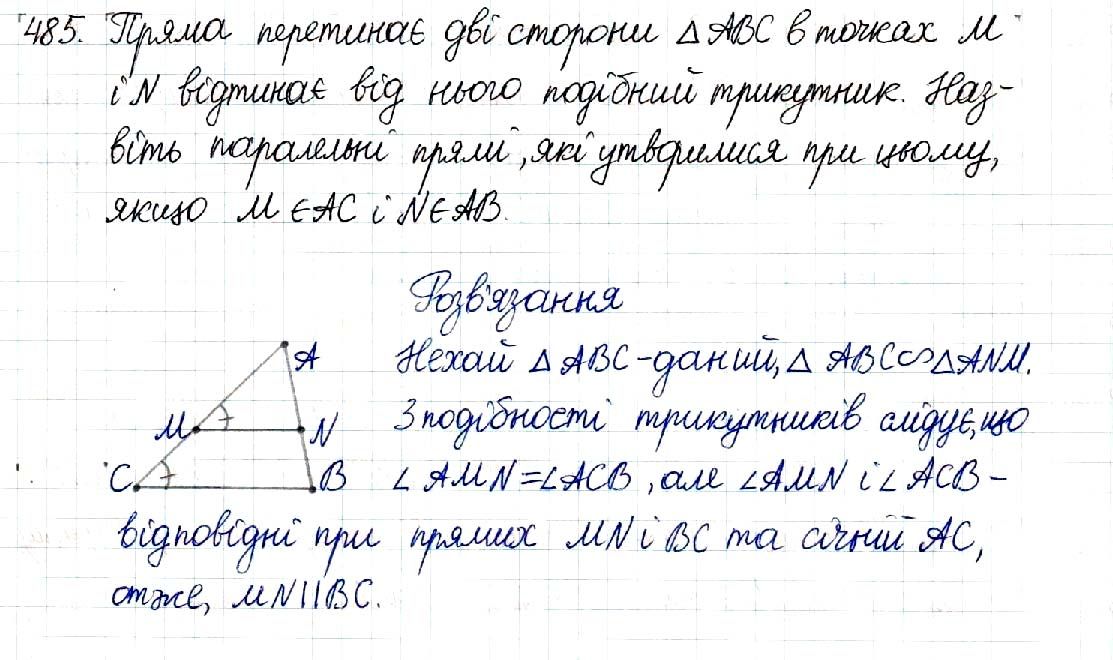 485. Пряма перетинає дві сторони △ABC в точках M
і N відтинає від нього подібний трикутник. Наз-
віть паралельні прямі, які утворилися при цьому,
якщо M∈AC і N∈AB.
Розв'язання
A
Нехай △ABC-даний, △ABC∽△ANM.
M
N
З подібності трикутників слідує, що
C
B
∠AMN=∠ACB, але ∠AMN і ∠ACB –
відповідні при прямих MN і BC та січній AC,
отже, MN||BC.